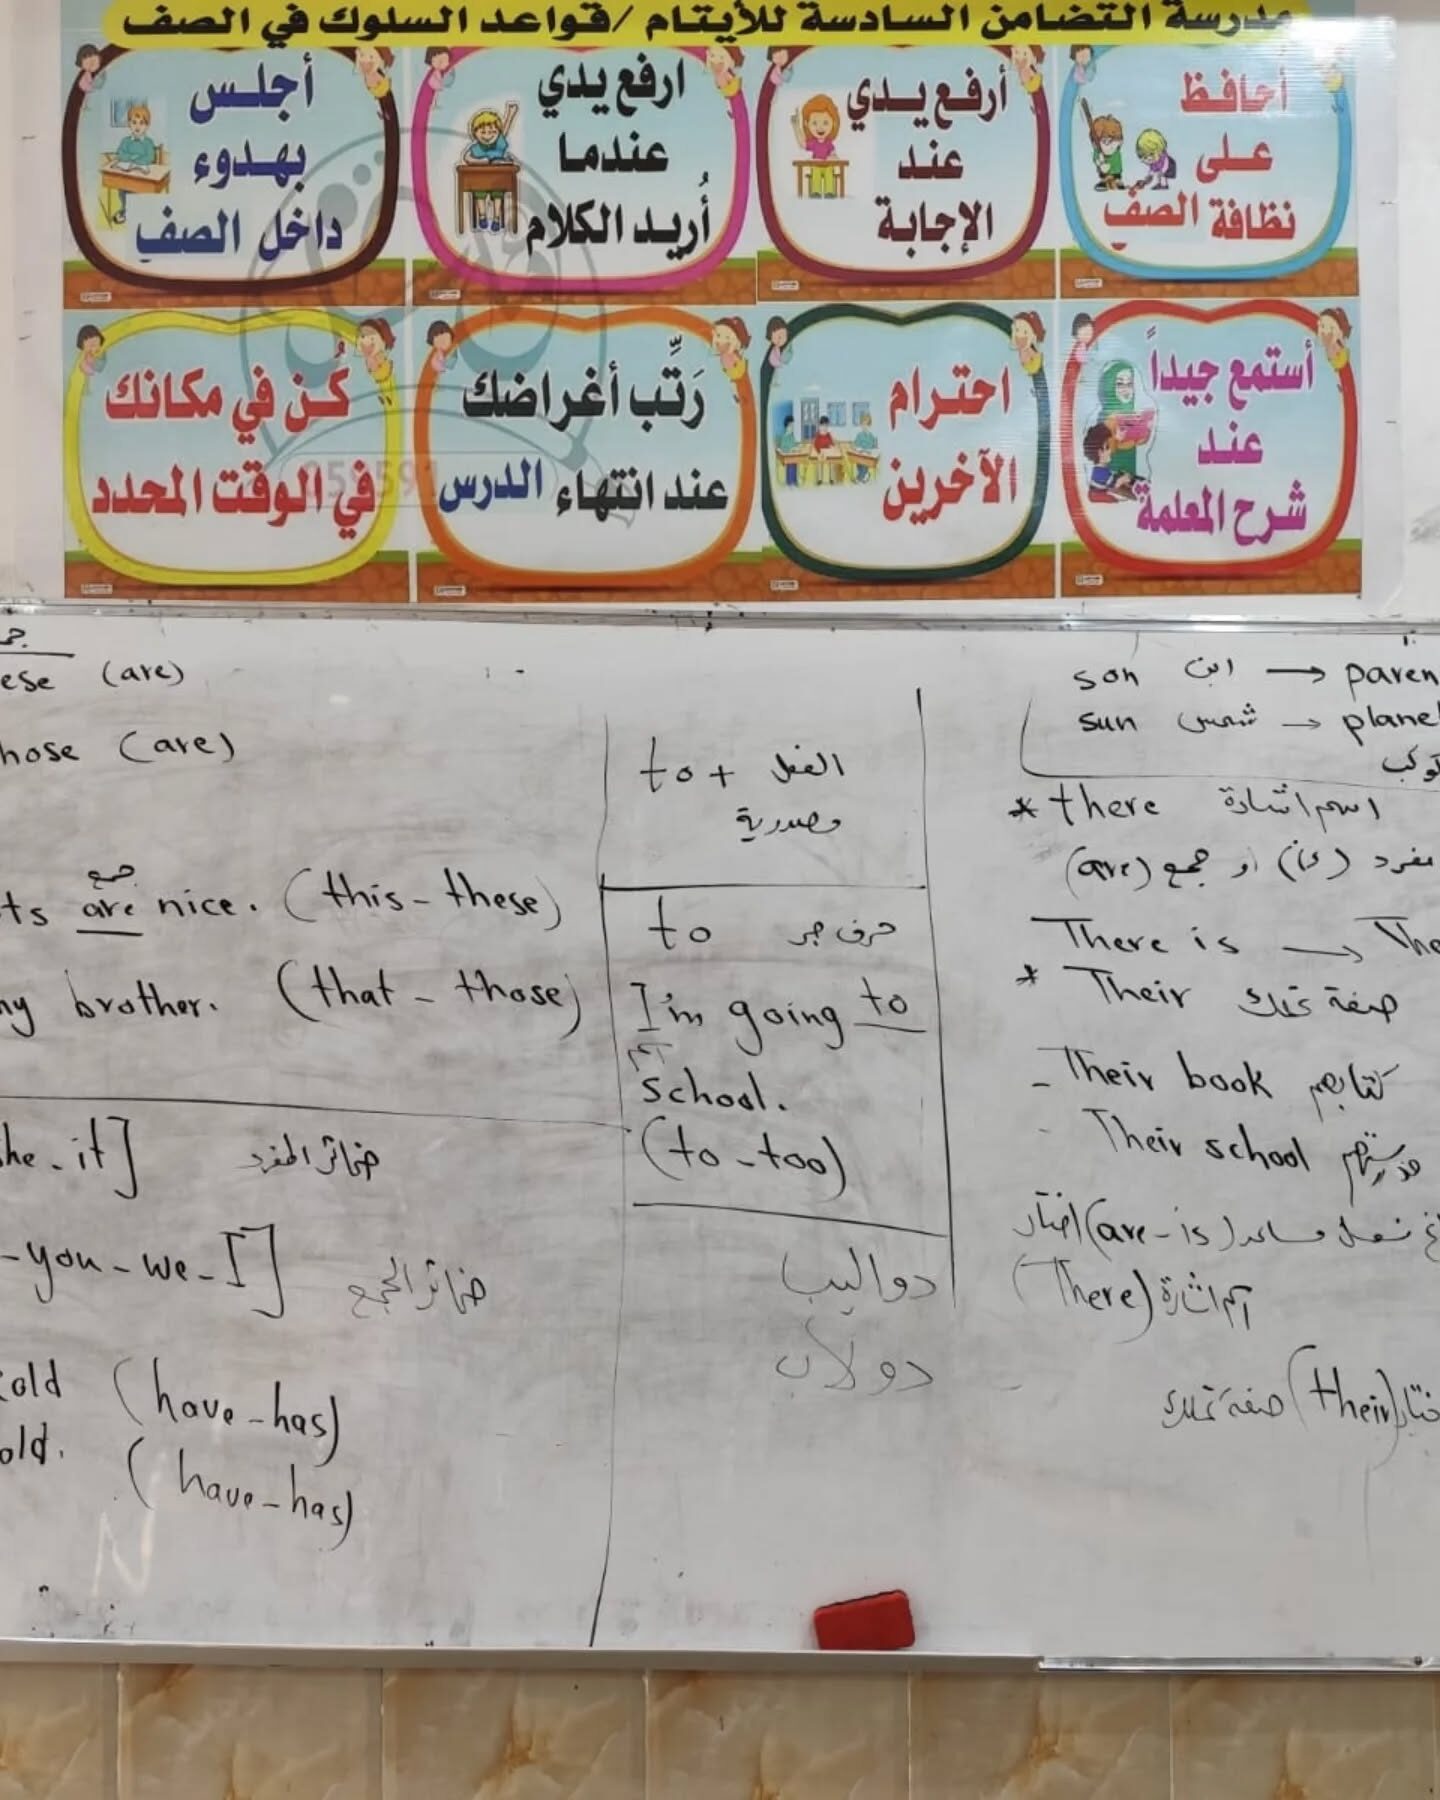 مدرسة التضامن السادسة للأيتام / قواعد السلوك في الصف
أحافظ
على
نظافة الصف
أرفع يدي
عند
الإجابة
ارفع يدي
عندما
أُريد الكلام
أجلس
بهدوء
داخل الصف
أستمع جيداً
عند
شرح المعلمة
احترام
الآخرين
رَتِّب أغراضك
عند انتهاء الدرس
كُن في مكانك
في الوقت المحدد
ese (are)
hose (are)
جمع
ts are nice. (this - these)
my brother. (that - those)
he - it] ضمائر المفرد
- you - we - I] ضمائر الجمع
old (have - has)
old. (have - has)
to + الفعل
مصدرية
to حرف جر
I'm going to
school.
(to - too)
دواليب
دولاب
son ابن → paren
sun شمس → planet
كوكب
* there اسم اشارة
مفرد (is) او جمع (are)
There is → The
* Their صفة تملك
- Their book كتابهم
- Their school مدرستهم
فعل مساعد (are - is) اختار
(There) اسم اشارة
(their) صفة تملك